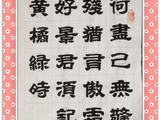 荷盡已無擎
殘猶有傲霜
好景君須記
黃橘綠時